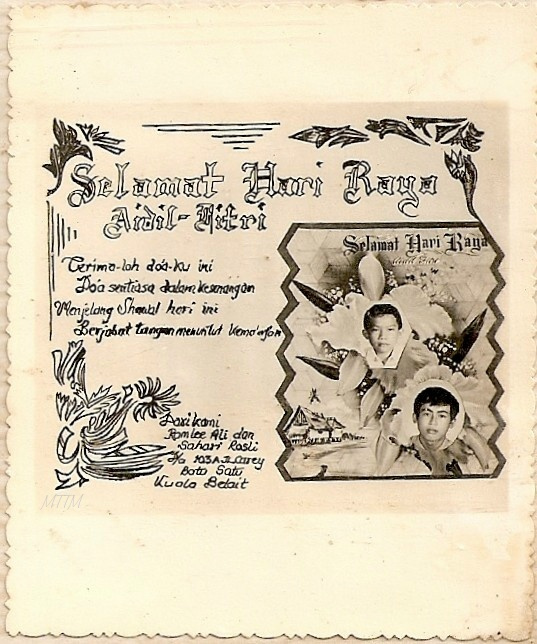 Selamat Hari Raya
Aidil-Fitri
Terima-lah doa-ku ini
Doa sentiasa dalam kesenangan
Menjelang Shawal hari ini
Berjabat tangan menuntut kema'afan
Selamat Hari Raya
Dari kami
Ramlee Ali dan
Sahari Rosli
103A Jl. Carey
Batu Satu
Kuala Belait
MTTM